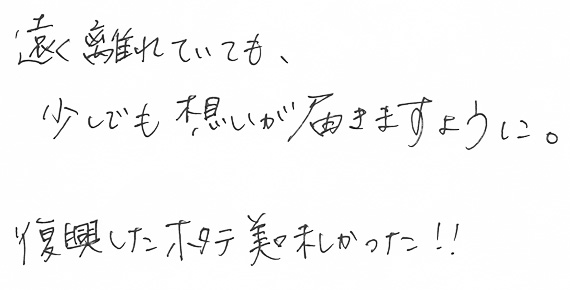 遠く離れていても、
少しでも想いが届きますように。
復興したホタテ美味しかった!!